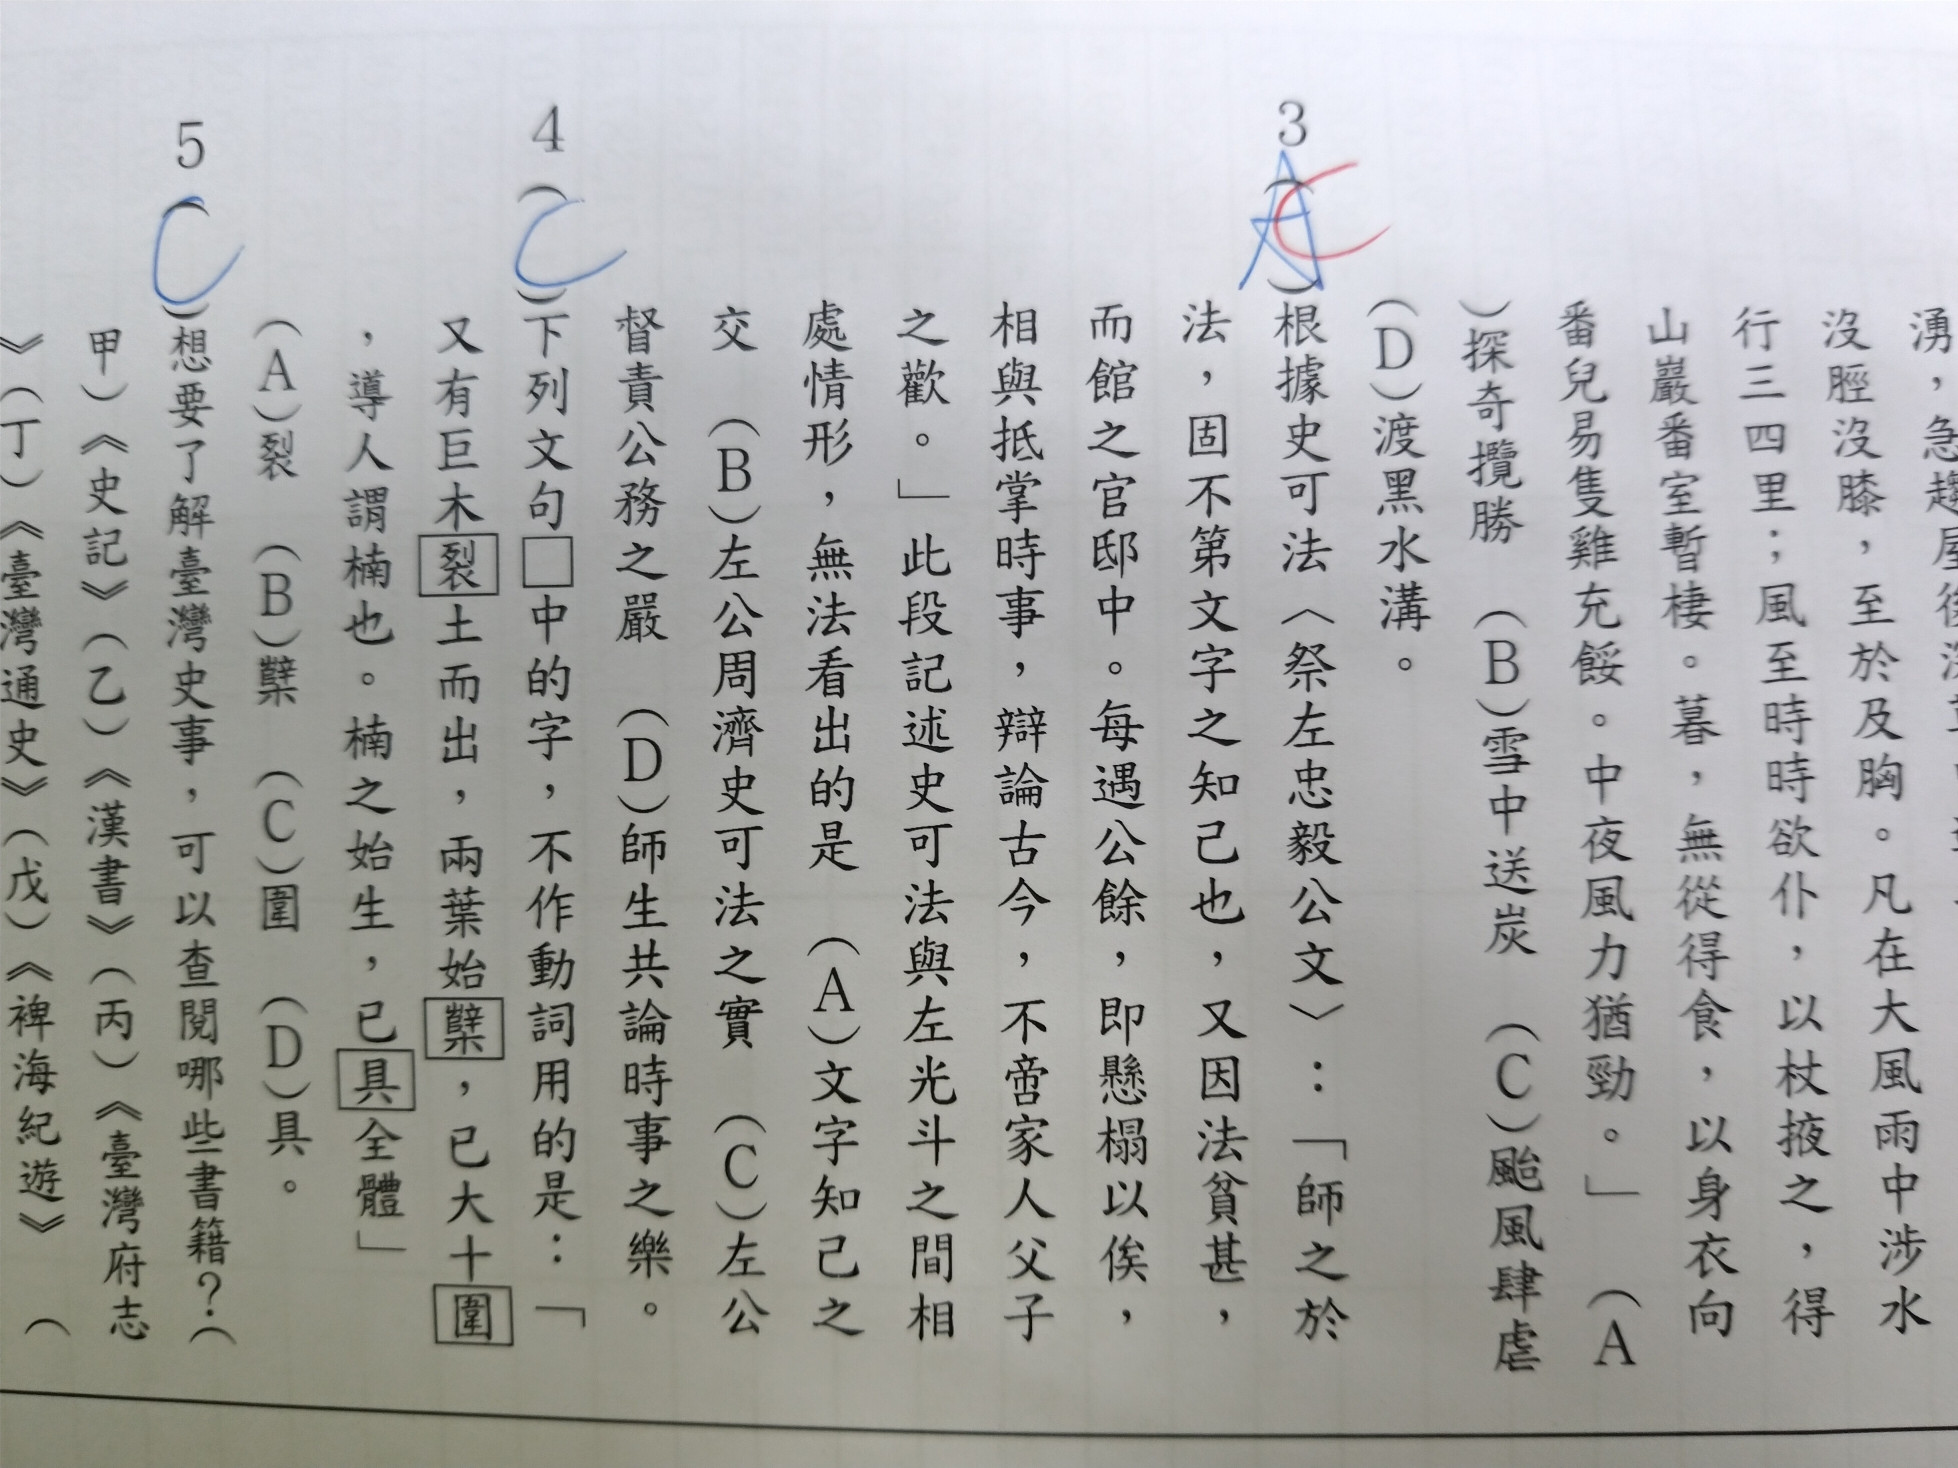 湧，急趨屋後深草中避
沒脛沒膝，至於及胸。凡在大風雨中涉水
行三四里；風至時時欲仆，以杖掖之，得
山巖番室暫棲。暮，無從得食，以身衣向
番兒易隻雞充餒。中夜風力猶勁。」 （A
）探奇攬勝 （B）雪中送炭 （C）颱風肆虐
（D）渡黑水溝。
3（A C）根據史可法〈祭左忠毅公文〉：「師之於
法，固不第文字之知己也，又因法貧甚，
而館之官邸中。每遇公餘，即懸榻以俟，
相與抵掌時事，辯論古今，不啻家人父子
之歡。」此段記述史可法與左光斗之間相
處情形，無法看出的是 （A）文字知己之
交 （B）左公周濟史可法之實 （C）左公
督責公務之嚴 （D）師生共論時事之樂。
4（C）下列文句□中的字，不作動詞用的是：「
又有巨木裂土而出，兩葉始櫱，已大十圍
，導人謂楠也。楠之始生，已具全體」
（A）裂 （B）櫱 （C）圍 （D）具。
5（C）想要了解臺灣史事，可以查閱哪些書籍？（
甲）《史記》（乙）《漢書》（丙）《臺灣府志
》（丁）《臺灣通史》（戊）《裨海紀遊》 （